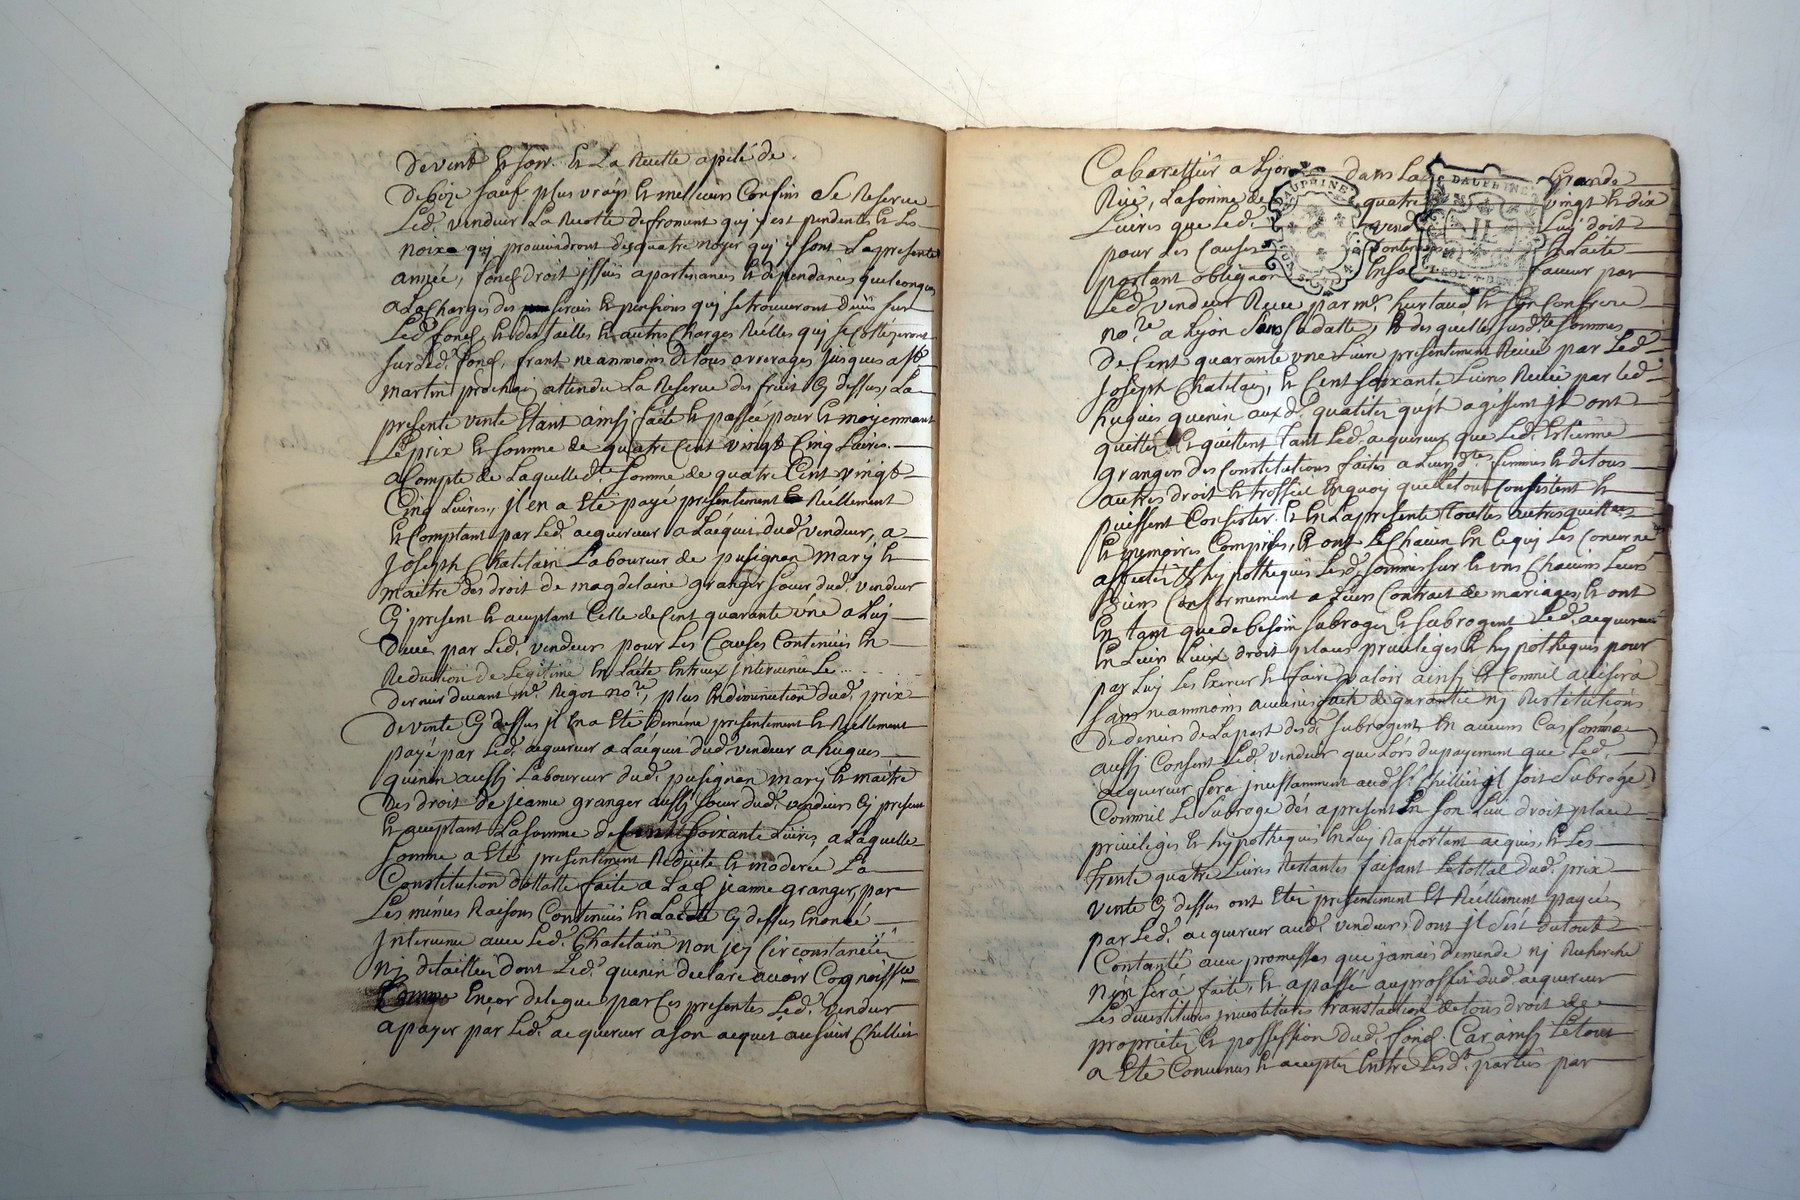 de vent & soir. & La Ruelle apelé de
de bize sauf plus vrays & meilleurs Confins se Reserve
Led. vendeur La Recolte de froment quj y est pendente & Les
noix quj proviendront des quatre noyer quj y sont La presente
année, fonds droit jssues apartenances & dependances quelconques
a La Charges des servis & pensions quj se trouveront duës sur
Led. fond, & des tailles & autres Charges Réelles quj se
sur led. fond, franc neanmoins de tous arrerages jusques a st
martin prochain attendu La Reserve des fruit Cy dessus, La
presente vente Etant ainsj faite & passée pour & moyennant
Le prix & somme de quatre Cent vingt Cinq Livres.
a Compte de Laquelle dte somme de quatre Cent vingt
Cinq Livres, jl en a Eté payé presentement & Réellement
& Comptant par Led. acquereur a L'acquit dud. vendeur, a
Joseph Chatelain Laboureur de pusignan mary &
maitre des droit de magdelaine granger soeur dud. vendeur
Cy present & acceptant Celle de Cent quarante vne a Luy
Duë par Led. vendeur pour Les Causes Contenuës En
Reduction de Legitime En L'acte Entreux jntervenu Le...
dernier devant me. Regot nore, plus En diminution dud. prix
de vente Cy dessus jl En a Eté de même presentement & Réellement
payé par Led. acquereur a L'acquit dud. vendeur a hugues
quenin aussj Laboureur dud. pusignan mary & maitre
des droit de jeanne granger aussj soeur dud. vendeur Cy present
& acceptant La somme de Cent soixante Livres, a Laquelle
somme a Eté presentement Reduite & moderée La
Constitution dottalle faite a Lad. jeanne granger, par
Les mêmes Raisons Contenuës En L'acte Cy dessus Enoncé
jntervenu avec Led. Chatelain non jcy Circonstanciée
nj detaillée dont Led. quenin declare avoir Cognoissce
Encor delegue par Ces presentes Led. vendeur
a payer par Led. acquereur a son acquit au sieur Chillier
Cabarettier a Lyon dans La Grande
Ruë, La somme de quatre vingt & dix
Livres que Led. vend Luy doit
pour Les Causes Contenuës En L'acte
portant obligaon En sa faveur par
Led. vendeur Receu par me. hurtaud & son Confrere
nore a Lyon sous Sa datte, & des quelles susdte sommes
de Cent quarante vne Livre presentement Receuë par Led.
Joseph Chatelain, & Cent soixante Livres Receuë par led.
hugues quenin aux d. qualitez qujls agissent jls ont
quitté & quittent tant Led. acquereur que Led. Etienne
granger des Constitutions faites a Leurs dtes femmes & de tous
autres droit En quoy que Le tout Consistent &
puissent Consister. & En La presente toutes autres quittces
& memoires Comprises, & ont Le Chacun En Ce quj Les Concerne
affecté & hypothequé Lesd. sommes sur & vns Chacuns Leurs
Biens Conformement a Leurs Contrat de mariages, & ont
En tant que de besoin subrogé & subrogent Led. acquereur
En Leur Lieux droit places privileges & hypotheques pour
par Luy Les Exercer & faire valoir ainsj & Comme avisera
sans neanmoins aucunes garantie nj Restitutions
de deniers de La part desd. subrogent En aucuns Cas Comme
aussj Consent Led. vendeur que Lors du payement que Led.
acquereur fera jncessamment aud. Sr. Chillier jl soit subrogé
Comme jl Le subroge dés apresent En son Lieu droit place
privileges & hypotheques En Luy Raportant acquis, & Les
trente quatre Livres Restantes faisant Le total dud. prix
vente Cy dessus ont Eté presentement Et Réellement payés
par Led. acquereur aud. vendeur, dont jl s'est du tout
Contanté avec promesses que jamais demande nj Recherche
n'en sera faite, & a passé au proffit dud. acquereur
Les devestitures jnvestitures translation de tous droit de
proprietés & possession dud. fond. Car ainsj Le tout
a Eté Convenus & accepté Entre Lesd. parties par
DAUPHINE
DAUPHINE